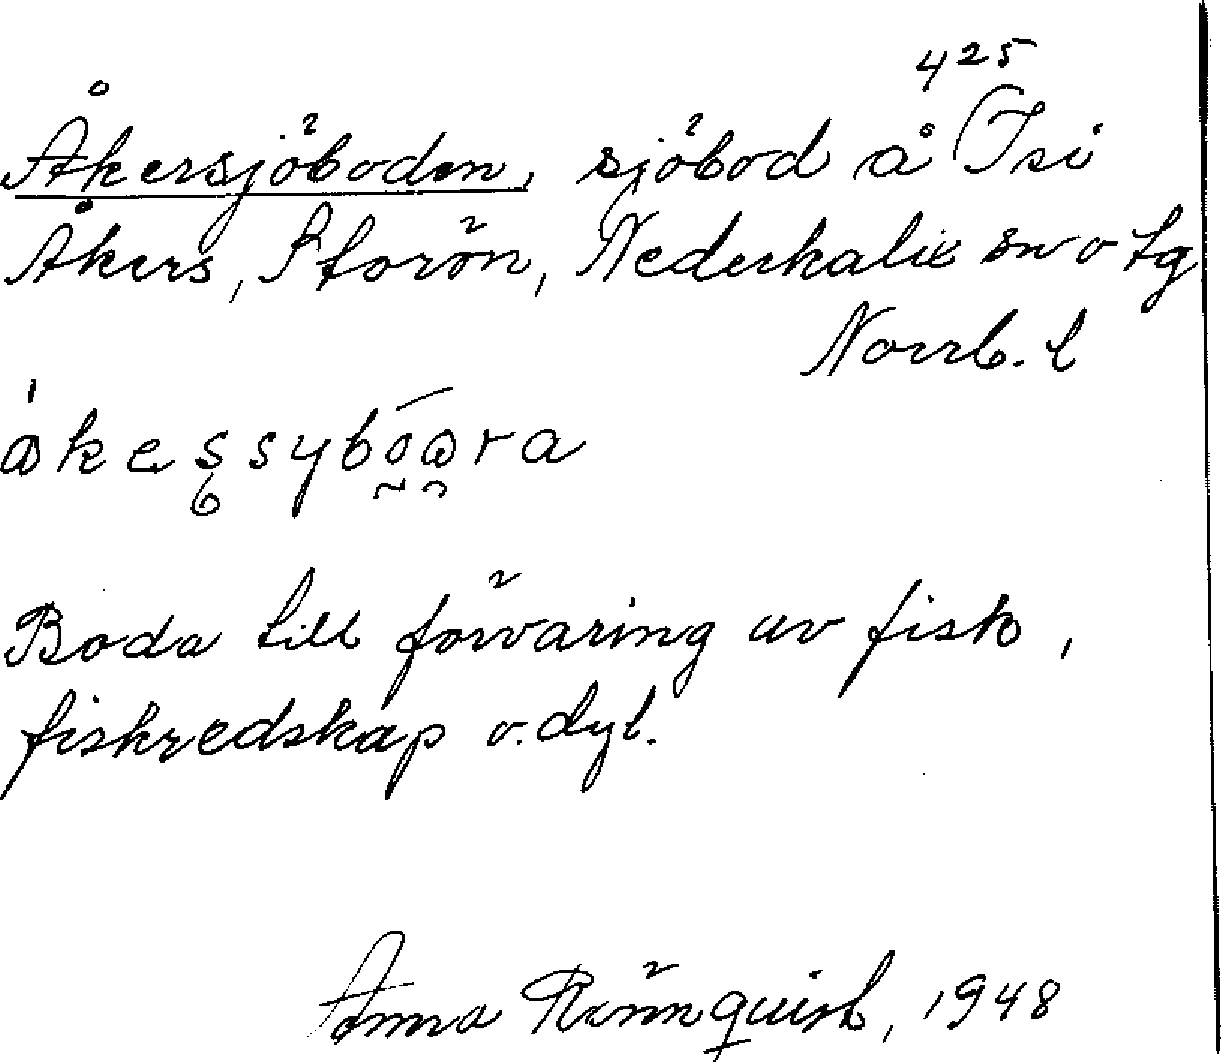 425
Åkersjöboden, sjöbod å Isi
Åkers, Storön, Nederkalix sn o tg
Norrb. l
Boda till förvaring av fisk,
fiskredskap o. dyl.
Anna Rönnquist, 1948